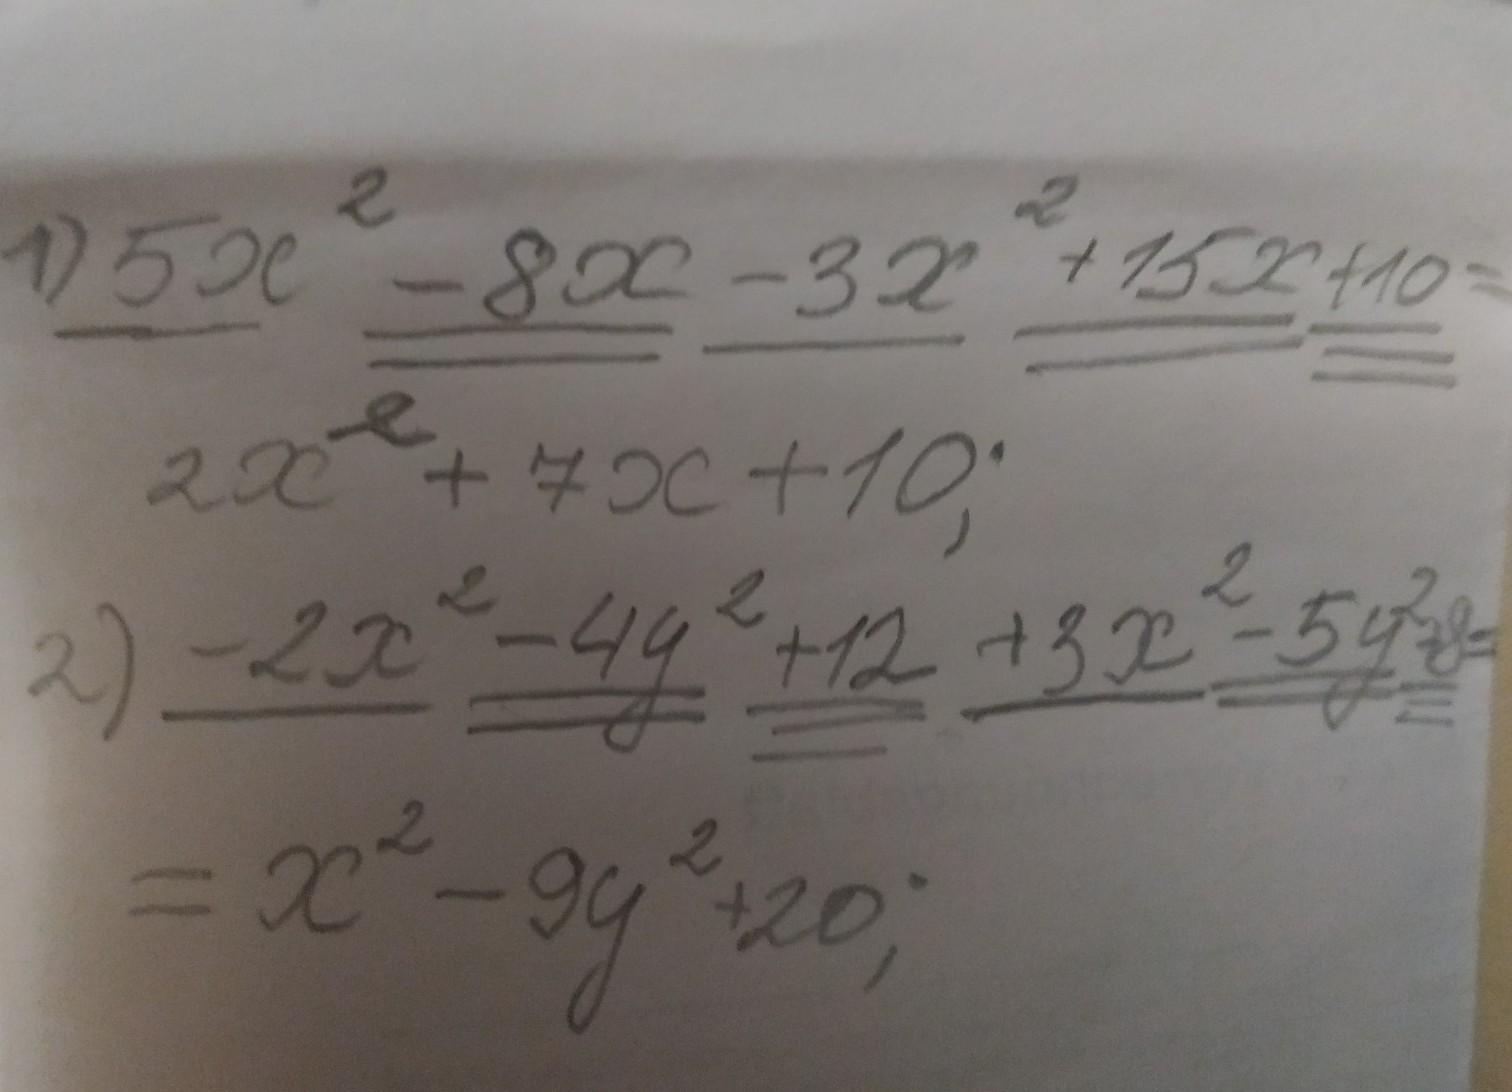 1) 5x² - 8x - 3x² + 15x + 10 =
2x² + 7x + 10;
2) -2x² - 4y² + 12 + 3x² - 5y² + 8 =
= x² - 9y² + 20;